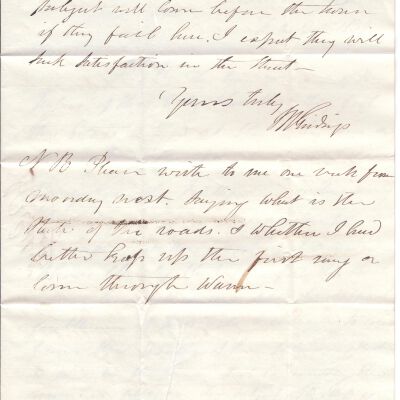 subject will come before the town
if they fail here. I expect they will
seek satisfaction in the street —
Yours truly
Giddings
N B Please write to me one week from
monday next. saying what is the
state of the roads. & whether I had
better keep up the first way or
come through Warren —